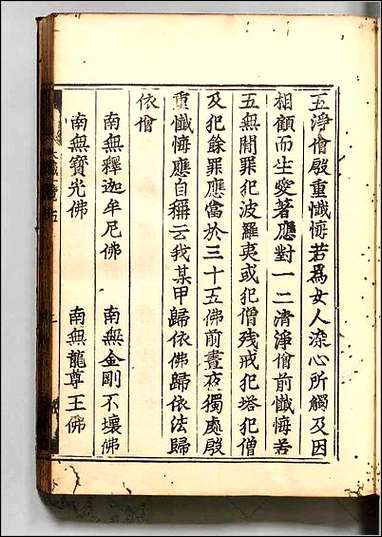 五淨僧殷重懺悔若爲女人染心所觸及因
相顧而生愛著應對一二清淨僧前懺悔若
五無間罪犯波羅夷或犯僧殘戒犯塔犯僧
及犯餘罪應當於三十五佛前晝夜獨處殷
重懺悔應自稱云我某甲歸依佛歸依法歸
依僧
南無釋迦牟尼佛　南無金剛不壞佛
南無寶光佛　南無龍尊王佛